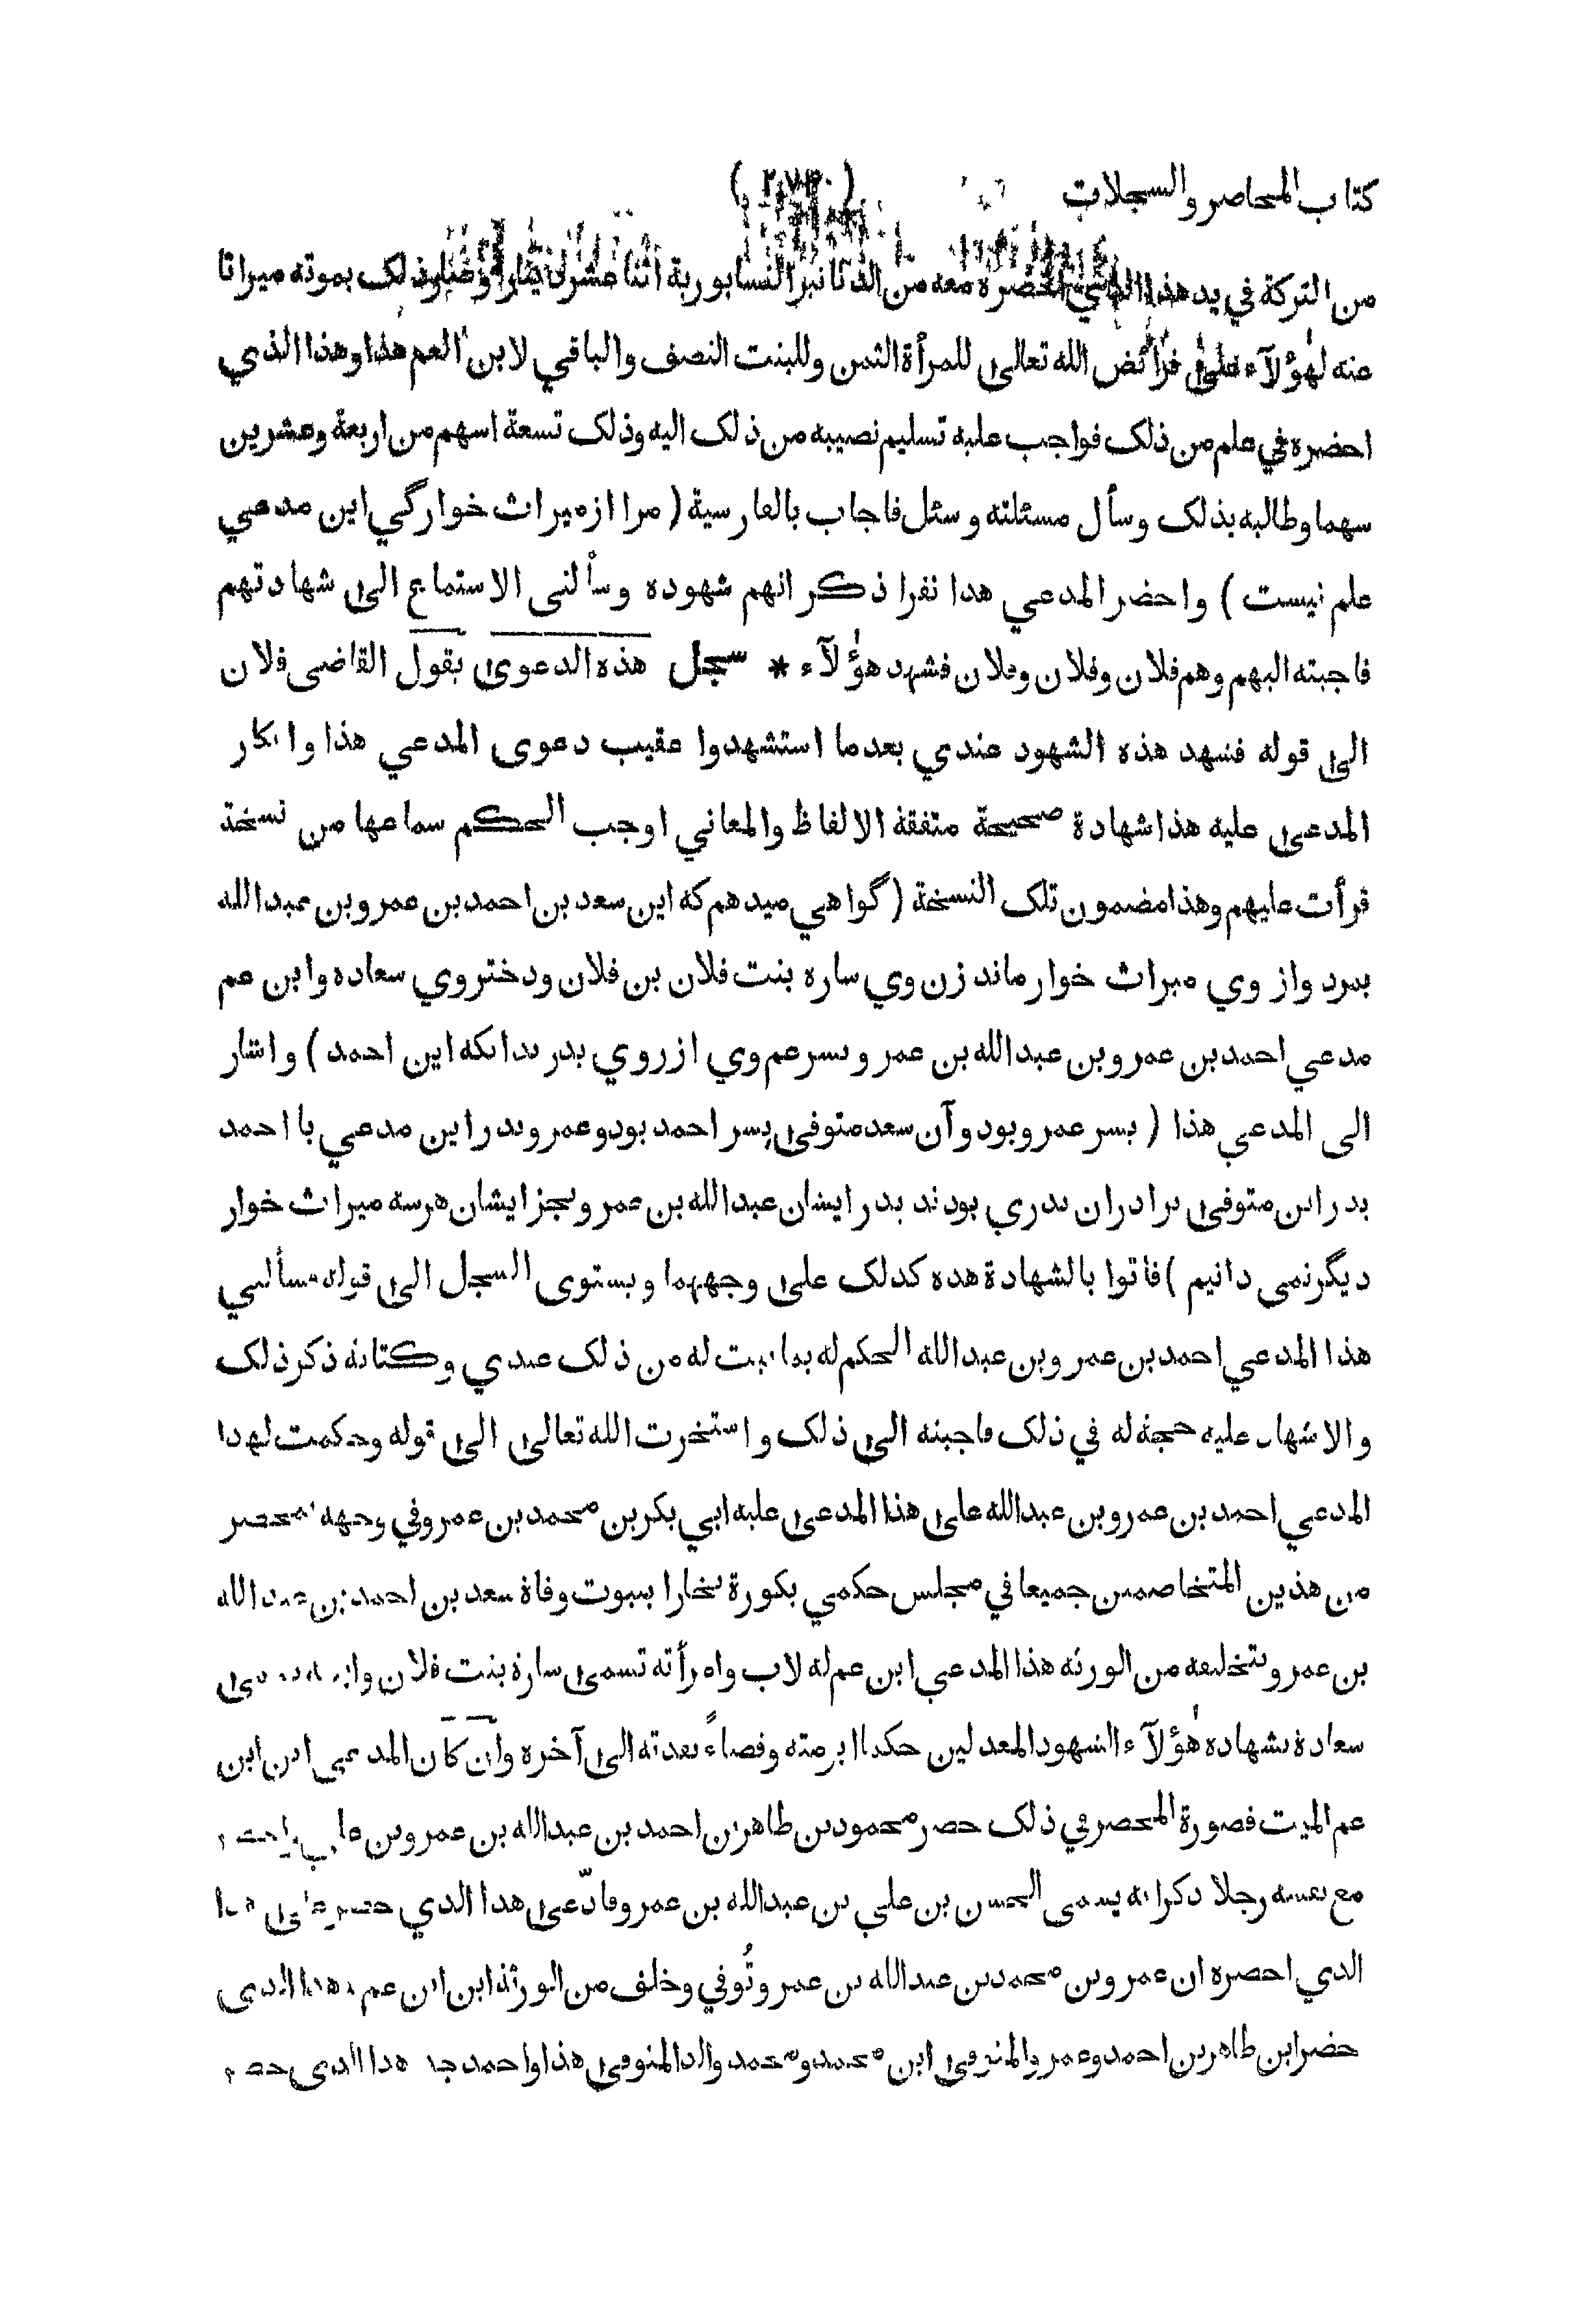 كتاب المحاضر والسجلات
من التركة في يد هذا الذي احضره معه من الدنانير النيسابورية اثنا عشر دينارا وصار ذلك بموته ميراثا
عنه لهؤلآء على فرائض الله تعالى للمرأة الثمن وللبنت النصف والباقي لابن العم هذا وهذا الذي
احضره في علم من ذلك فواجب عليه تسليم نصيبه من ذلك اليه وذلك تسعة اسهم من اربعة وعشرين
سهما وطالبه بذلك وسأل مسئلته وسئل فاجاب بالفارسية ( مرا از ميراث خوارگي اين مدعي
علم نيست ) واحضر المدعي هذا نفرا ذكر انهم شهوده وسألنى الاستماع الى شهادتهم
فاجبته اليهم وهم فلان وفلان وفلان فشهد هؤلآء * سجل هذه الدعوى يقول القاضى فلان
الى قوله فشهد هذه الشهود عندي بعدما استشهدوا عقيب دعوى المدعي هذا وانكار
المدعى عليه هذا شهادة صحيحة متفقة الالفاظ والمعاني اوجب الحكم سماعها من نسخة
قرأت عليهم وهذا مضمون تلك النسخة ( گواهي ميدهم كه اين سعد بن احمد بن عمرو بن عبدالله
بمرد واز وي ميراث خوار ماند زن وي ساره بنت فلان بن فلان ودختر وي سعاده وابن عم
مدعي احمد بن عمرو بن عبدالله بن عمر وپسر عم وي از روي پدر بدانكه اين احمد ) واشار
الى المدعي هذا ( پسر عمرو بود وآن سعد متوفى پسر احمد بود وعمرو پدر اين مدعي با احمد
پدر اين متوفى برادران پدري بودند پدر ايشان عبدالله بن عمر وبجز ايشان هر سه ميراث خوار
ديگر نمى دانيم ) فاتوا بالشهادة هذه كذلك على وجهها ويستوى السجل الى قوله فسألني
هذا المدعي احمد بن عمرو بن عبدالله الحكم له بما ثبت له من ذلك عندي وكتابة ذكر ذلك
والاشهاد عليه حجة له في ذلك فاجبته الى ذلك واستخرت الله تعالى الى قوله وحكمت لهذا
المدعي احمد بن عمرو بن عبدالله على هذا المدعى عليه ابي بكر بن محمد بن عمرو في وجهه بمحضر
من هذين المتخاصمين جميعا في مجلس حكمي بكورة بخارا بثبوت وفاة سعد بن احمد بن عبدالله
بن عمر وبتخليفه من الورثة هذا المدعي ابن عم له لاب وامرأته تسمى سارة بنت فلان وابنة تسمى
سعادة بشهادة هؤلآء الشهود المعدلين حكما ابرمته وقضاءً نفذته الى آخره وان كان المدعى ابن ابن
عم الميت فصورة المحضر في ذلك حضر محمود بن طاهر بن احمد بن عبدالله بن عمر وبن
مع نفسه رجلا ذكر انه يسمى الحسن بن علي بن عبدالله بن عمر وفادّعى هذا الذي حضر على هذا
الذي احضره ان عمر وبن محمد بن عبدالله بن عمر وتُوفي وخلف من الورثة ابن ابن عم هذا الذي
حضر ابن طاهر بن احمد وعمر والمتوفى ابن محمد ومحمد والد المتوفى هذا واحمد جد هذا الذى حضر